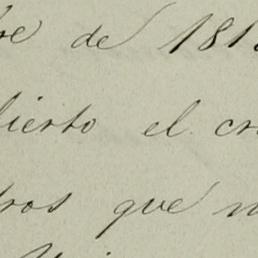 re de 181
lierto el cr
ros que n